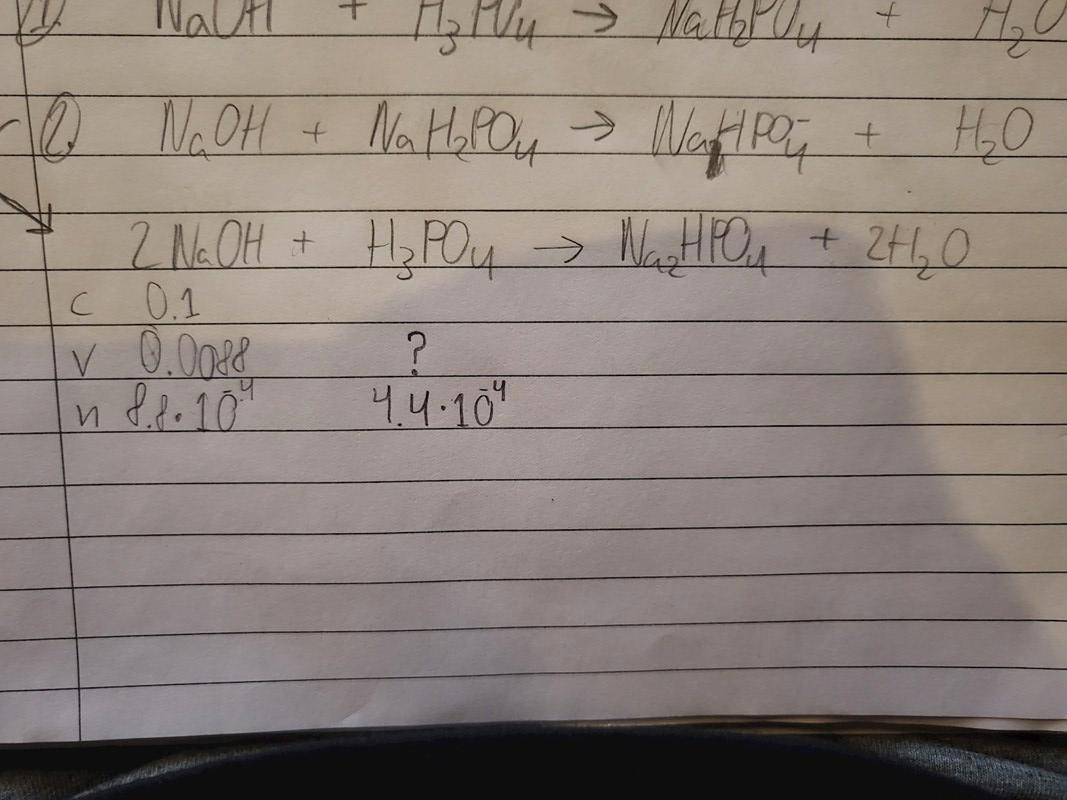 1) NaOH + H₃PO₄ → NaH₂PO₄ + H₂O
2. NaOH + NaH₂PO₄ → NaHPO₄⁻ + H₂O
2NaOH + H₃PO₄ → Na₂HPO₄ + 2H₂O
c 0.1
v 0.0088 ?
n 8.8·10⁻⁴ 4.4·10⁻⁴